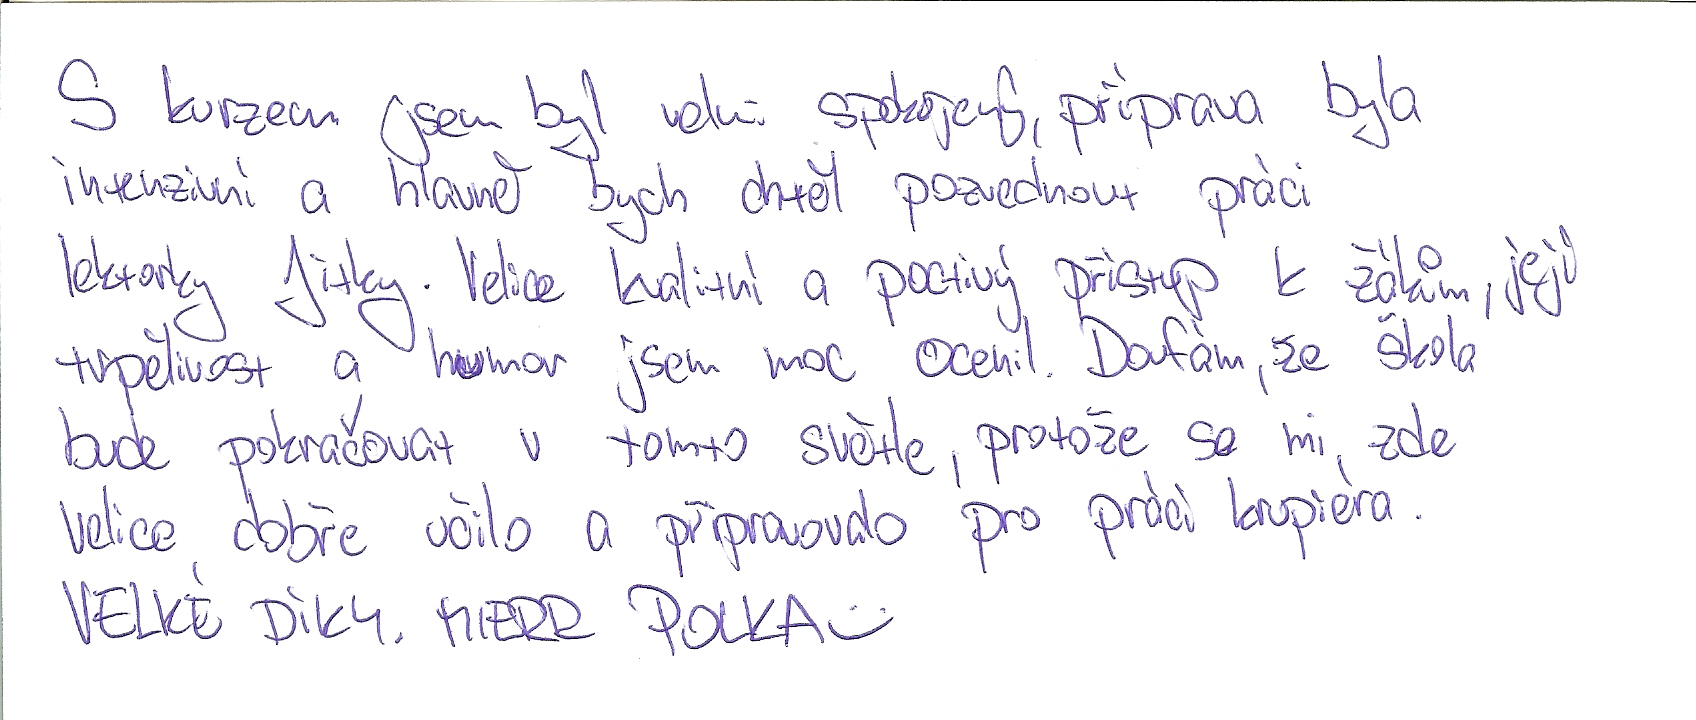 S kurzem jsem byl velmi spokojený, příprava byla
intenzivní a hlavně bych chtěl pozvednout práci
lektorky Jitky. Velice kvalitní a poctivý přístup k žákům, její
trpělivost a humor jsem moc ocenil. Doufám, že škola
bude pokračovat v tomto světle, protože se mi, zde
velice dobře učilo a připravovalo pro práci krupiéra.
VELKÉ DÍKY. HERR POLKA